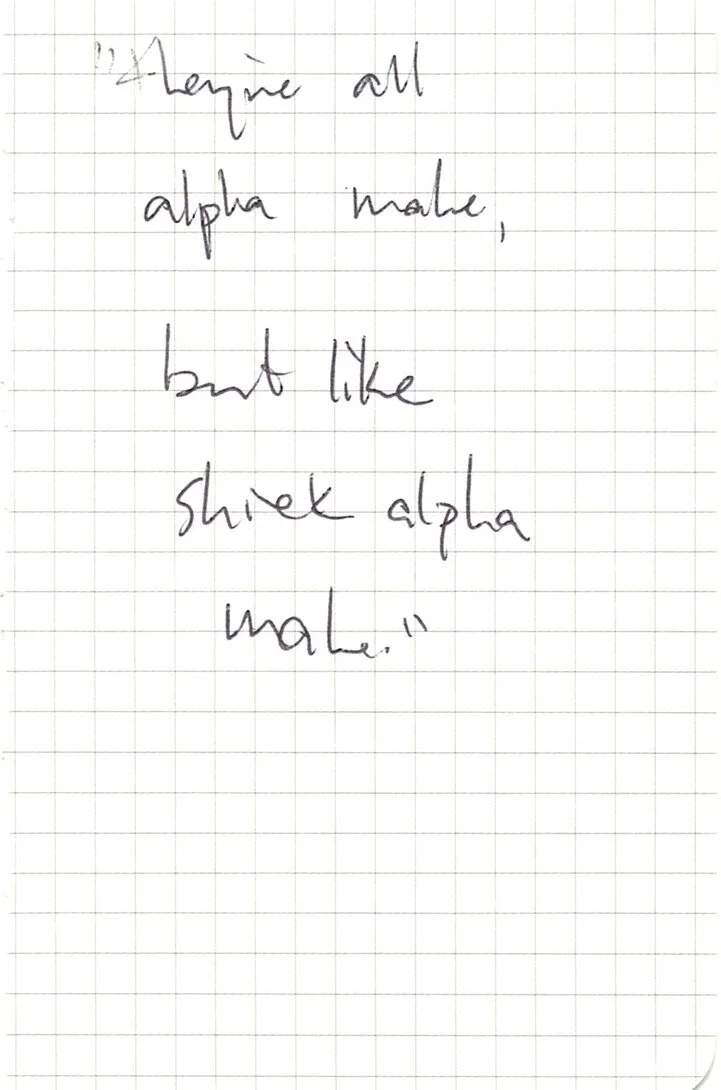 "They're all
alpha male,
but like
shiek alpha
male."